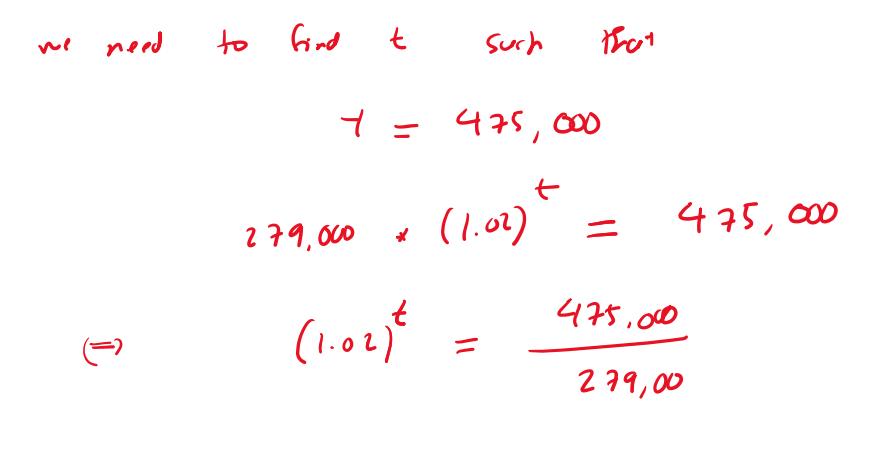 we need to find t such that
Y = 475,000
279,000 * (1.02)^t = 475,000
(=) (1.02)^t = 475,000 / 279,00